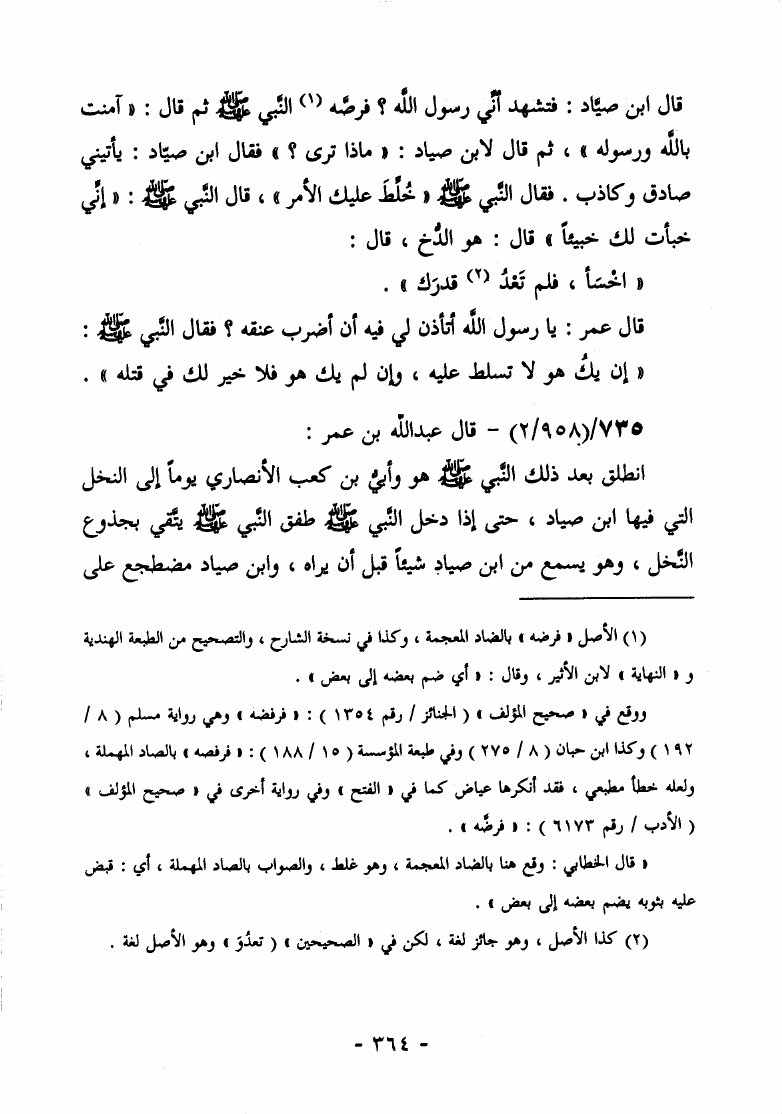 قال ابن صيَّاد : فتشهد أنِّي رسول اللَّه ؟ فرصَّه (١) النَّبي ﷺ ثم قال : « آمنت
باللَّه ورسوله » ، ثم قال لابن صياد : « ماذا ترى ؟ » فقال ابن صيّاد : يأتيني
صادق وكاذب . فقال النَّبي ﷺ « خُلِّطَ عليك الأمر » ، قال النَّبي ﷺ : « إنِّي
خبأت لك خبيئاً » قال : هو الدُّخ ، قال :
« اخْسَأ ، فلم تَعْدُ (٢) قدرَك » .
قال عمر : يا رسول اللَّه أتأذن لي فيه أن أضرب عنقه ؟ فقال النَّبي ﷺ :
« إن يكُ هو لا تسلط عليه ، وإن لم يك هو فلا خير لك في قتله » .
٧٣٥/(٢/٩٥٨) – قال عبداللَّه بن عمر :
انطلق بعد ذلك النَّبي ﷺ هو وأبيُّ بن كعب الأنصاري يوماً إلى النخل
التي فيها ابن صياد ، حتى إذا دخل النَّبي ﷺ طفق النَّبي ﷺ يتَّقي بجذوع
النَّخل ، وهو يسمع من ابن صيادٍ شيئاً قبل أن يراه ، وابن صياد مضطجع على
(١) الأصل « فرضه » بالضاد المعجمة ، وكذا في نسخة الشارح ، والتصحيح من الطبعة الهندية
و « النهاية » لابن الأثير ، وقال : « أي ضم بعضه إلى بعض » .
ووقع في « صحيح المؤلف » ( الجنائز / رقم ١٣٥٤ ) : « فرفضه » وهي رواية مسلم ( ٨ /
١٩٢ ) وكذا ابن حبان ( ٨ / ٢٧٥ ) وفي طبعة المؤسسة ( ١٥ / ١٨٨ ) : « فرفصه » بالصاد المهملة ،
ولعله خطأ مطبعي ، فقد أنكرها عياض كما في « الفتح » وفي رواية أخرى في « صحيح المؤلف »
( الأدب / رقم ٦١٧٣ ) : « فرضَّه » .
« قال الخطابي : وقع هنا بالضاد المعجمة ، وهو غلط ، والصواب بالصاد المهملة ، أي : قبض
عليه بثوبه يضم بعضه إلى بعض » .
(٢) كذا الأصل ، وهو جائز لغة ، لكن في « الصحيحين » ( تعدُوَ ) وهو الأصل لغة .
- ٣٦٤ -